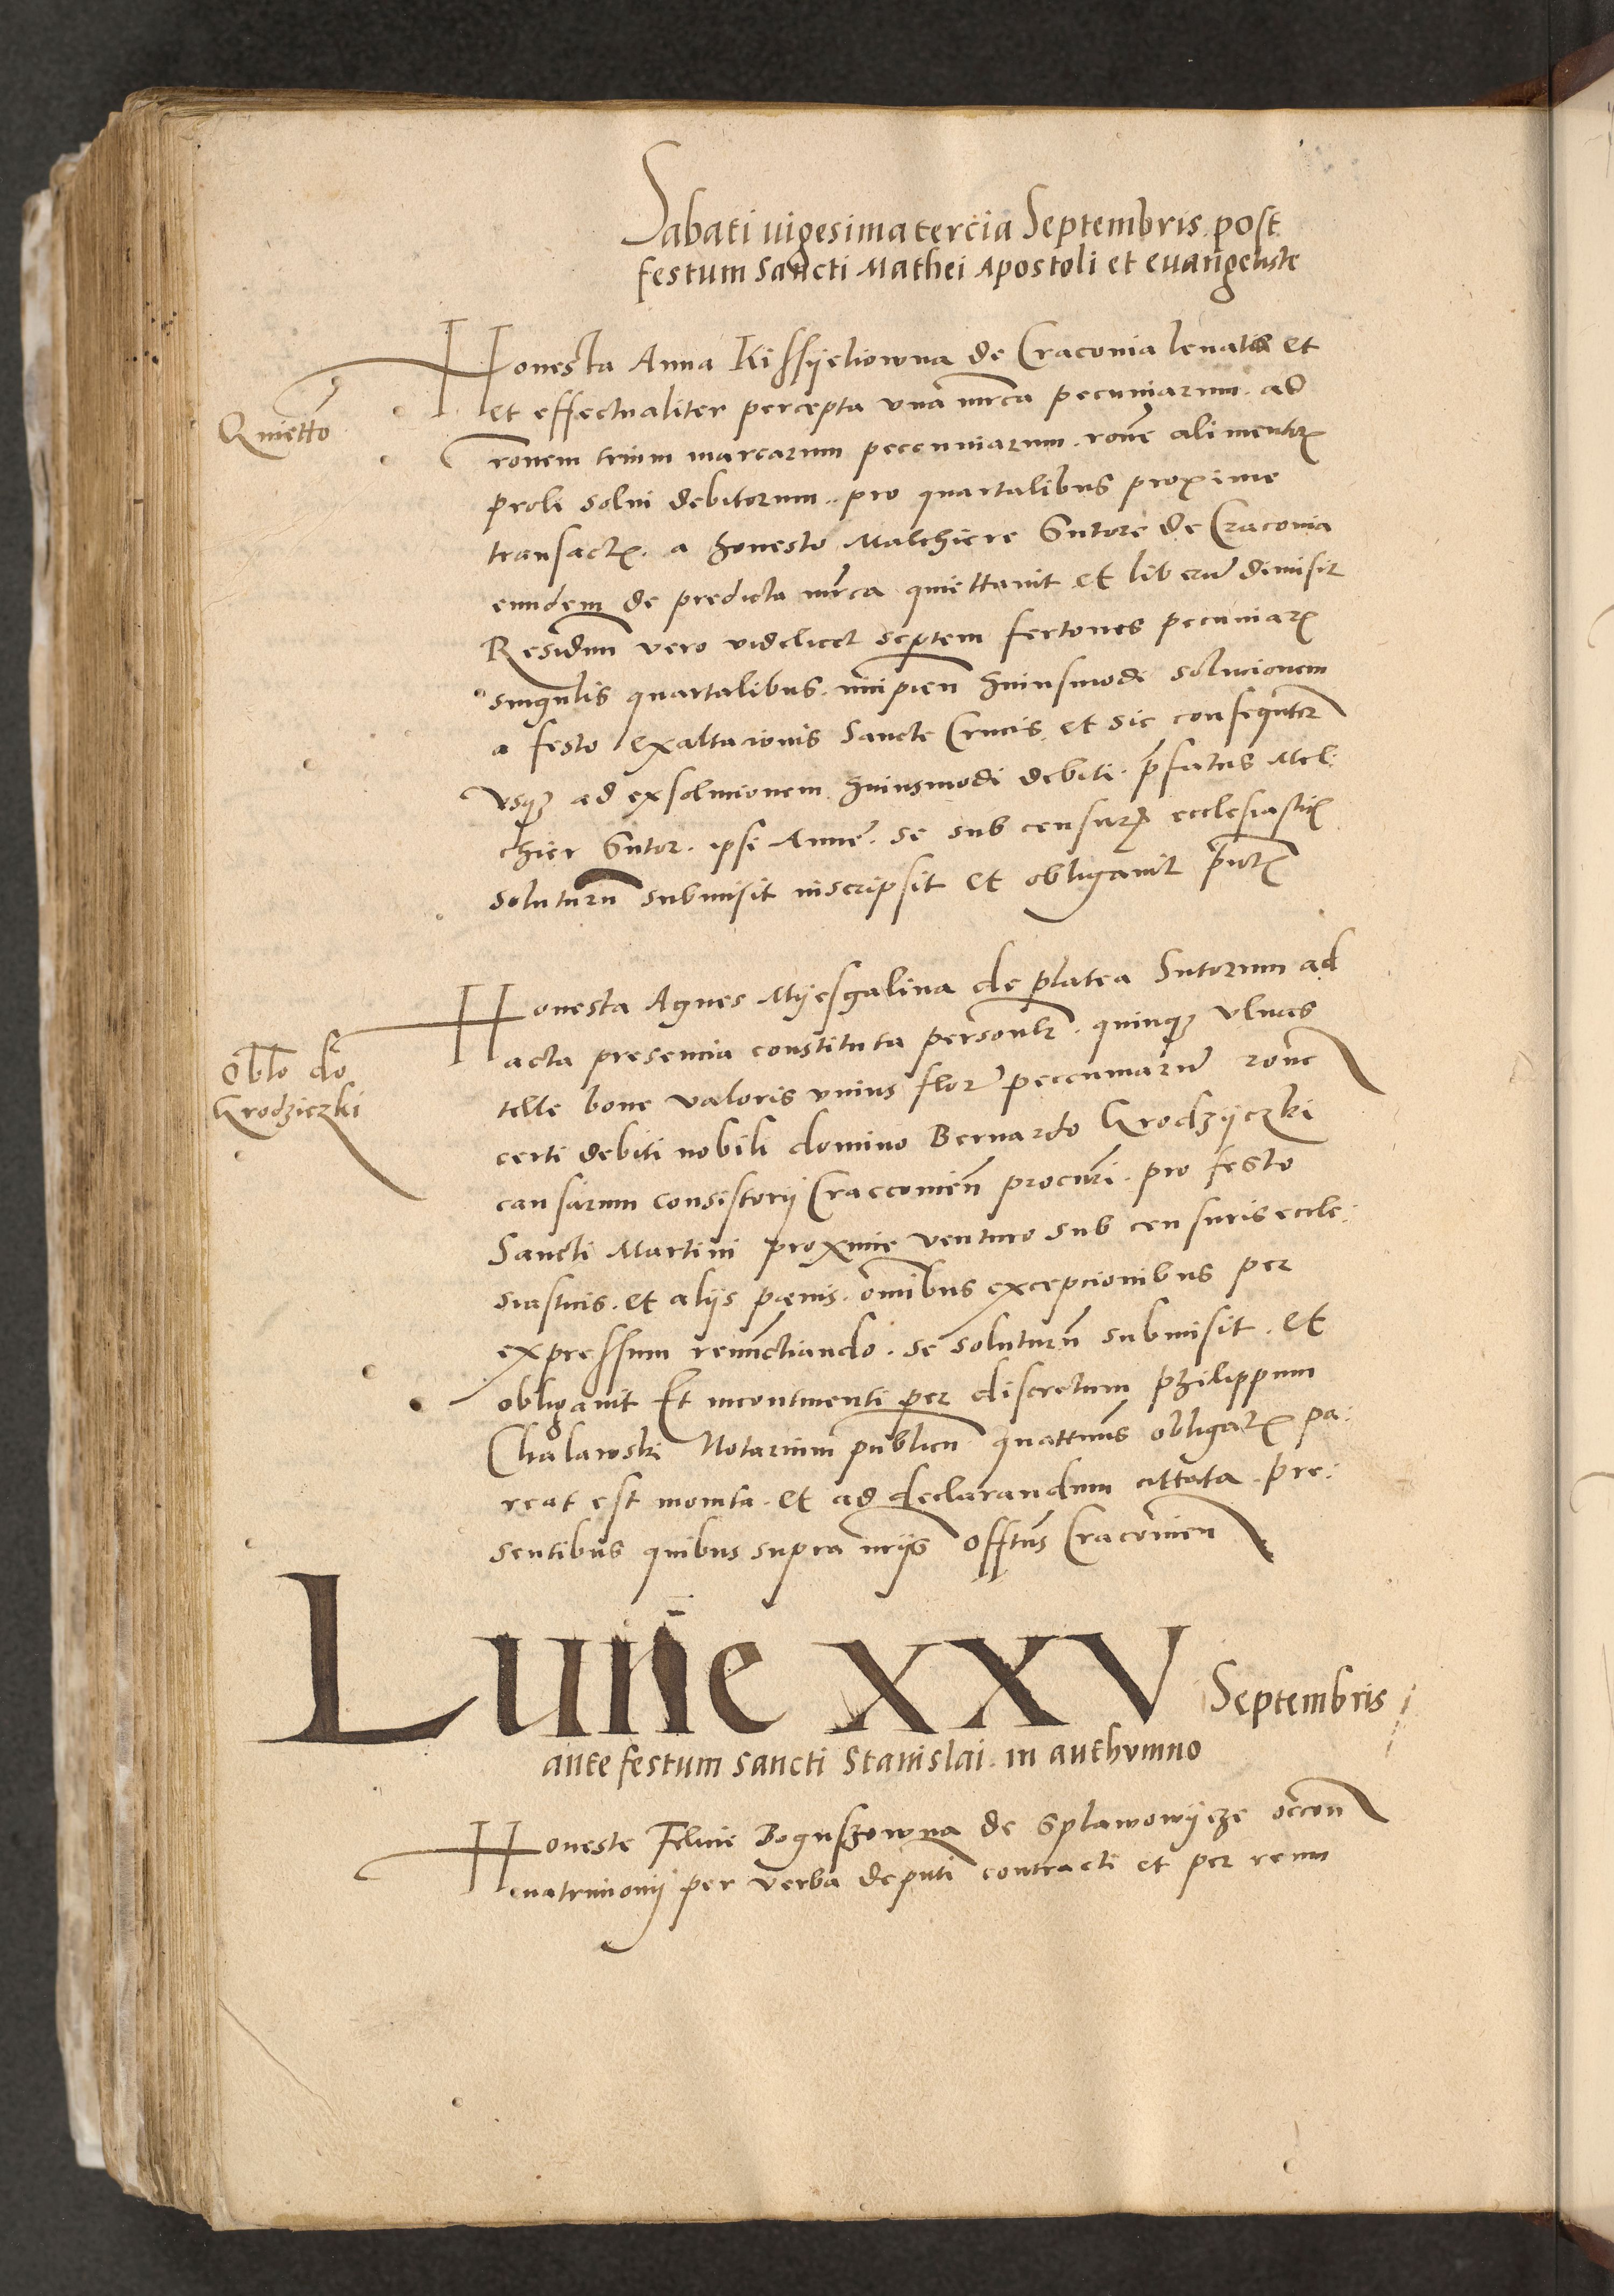 Sabati uigesima tercia Septembris post
festum Sancti Mathei Apostoli et evangeliste
Honesta Anna Kissyeliowna de Cracovia levata et
Quietto
et effectualiter percepta una mrca pecuniarum ad
ronem trium marcarum peccuniarum rone alimentor
proli solui debitorum pro quartalibus proxime
transact a honesto Malchiere Sutore de Cracovia
eundem de predicta mrca quiettavit et liberu dimisit
Residuum vero videlicet septem fertones pecuniar
singulis quartalibus incipien huiusmodi solucionem
a festo exaltacionis Sancte Crucis et sic consequter
Usq ad exsolucionem huiusmodi debiti pfatus Mel:
chier Sutor ipsi Anne se sub censur ecclesiastic
soluturu submisit inscripsit et obligavit
Honesta Agnes Myesgalina de platea Sutorum ad
acta presencia constituta personlr quinq Ulnas
Oblo do
Grodziczki
telle bone valoris unius flor peccuniaru rone
certi debiti nobili domino Bernardo Grodzyczki
causarum Consistorii Craccovien procuri pro festo
Sancti Martini proxime venturo sub censuris eccle:
siasticis et aliis penis omibus excepcionibus per
expressum renunctiando se soluturu submisit et
obligavit Et incontinenti per discretum Philippum
Chalawski Notarium publicu quattenus obligat pa:
reat est monita et ad declarandum cittata pre:
sentibus quibus supra nriis Offtus Cracovien
Lune XXV Septembris
ante festum sancti Stanislai in authvmno
Honeste Felicie Boguszowna de Splawowycze occon
matrimonii per verba deputi contracti et per renu